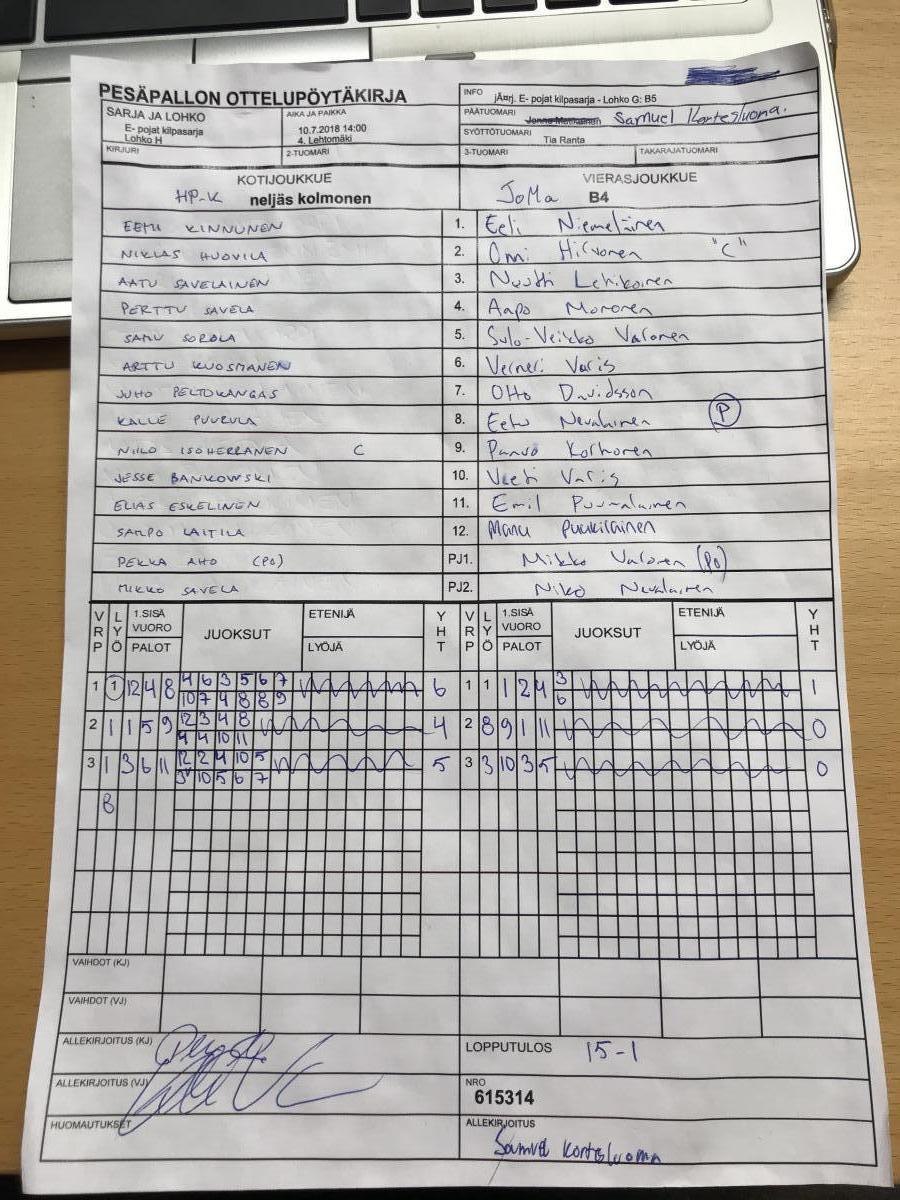 PESÄPALLON OTTELUPÖYTÄKIRJA
INFO jÄ¤rj. E- pojat kilpasarja - Lohko G: B5
SARJA JA LOHKO
E- pojat kilpasarja
Lohko H
AIKA JA PAIKKA
10.7.2018 14:00
4. Lehtomäki
PÄÄTUOMARI Samuel Kortesluoma.
SYÖTTÖTUOMARI
Tia Ranta
KIRJURI 2-TUOMARI 3-TUOMARI TAKARAJATUOMARI
KOTIJOUKKUE VIERASJOUKKUE
HP-K neljäs kolmonen JoMa B4
EEMU KINNUNEN 1. Eeli Niemeläinen
NIKLAS HUOVILA 2. Onni Hirvonen "C"
AATU SAVELAINEN 3. Nuutti Lehikoinen
PERTTU SAVELA 4. Aapo Mononen
SAMU SOROLA 5. Sulo-Veikko Valonen
ARTTU KUOSMANEN 6. Verneri Varis
JUHO PELTOKANGAS 7. Otto Davidsson
KALLE PUURULA 8. Eetu Nevalainen P
NIILO ISOHERRANEN C 9. Panso Korhonen
JESSE BANKOWSKI 10. Veeti Varis
ELIAS ESKELINEN 11. Emil Puumalainen
SAMPO LAITILA 12. Manu Puukilainen
PEKKA AHO (PO) PJ1. Mikko Valonen (PO)
MIKKO SAVELA PJ2. Niko Nevalainen
VRP LYÖ 1.SISÄ VUORO PALOT JUOKSUT ETENIJÄ LYÖJÄ YHT VRP LYÖ 1.SISÄ VUORO PALOT JUOKSUT ETENIJÄ LYÖJÄ YHT
1 1 12 4 8 4 6 3 5 6 7 6 1 1 1 2 4 3 1
10 7 4 8 8 9 6
2 1 1 5 9 12 3 4 8 4 2 8 9 1 11 0
4 4 10 11
3 1 3 6 11 12 2 4 10 5 5 3 3 10 3 5 0
3 10 5 6 7
8
VAIHDOT (KJ)
VAIHDOT (VJ)
ALLEKIRJOITUS (KJ) LOPPUTULOS 15-1
ALLEKIRJOITUS (VJ) NRO
615314
HUOMAUTUKSET ALLEKIRJOITUS
Samuel Kortesluoma